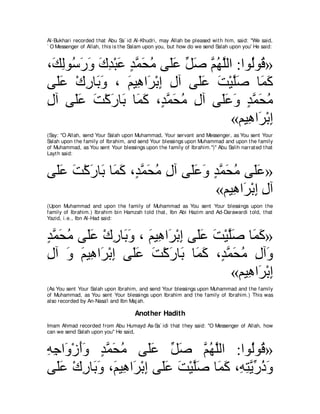 Al-Bukhari recorded that Abu Sa`id Al-Khudri, may Allah be pleased with him, said: "We said,
`O Messenger of Allah, this is the Salam upon you, but how do we send Salah upon you' He said:
«قُولُوا: اللَّهُمَّ صَلِّ عَلَى مُحَمَّدٍ عَبْدِكَ وَرَسُولِكَ،
كَمَا صَلَّيْتَ عَلَى آلِ إِبْرَاهِيمَ ، وَبَارِكْ عَلَى
مُحَمَّدٍ وَعَلَى آلِ مُحَمَّدٍ، كَمَا بَارَكْتَ عَلَى آلِ
إِبْرَاهِيم»
(Say: "O Allah, send Your Salah upon Muhammad, Your servant and Messenger, as You sent Your
Salah upon the family of Ibrahim, and send Your blessings upon Muhammad and upon the family
of Muhammad, as You sent Your blessings upon the family of Ibrahim.")" Abu Salih narrated that
Layth said:
«عَلَى مُحَمَّدٍ وَعَلَى آلِ مُحَمَّدٍ، كَمَا بَارَكْتَ عَلَى
آلِ إِبْرَاهِيم»
(Upon Muhammad and upon the family of Muhammad as You sent Your blessings upon the
family of Ibrahim.) Ibrahim bin Hamzah told that, Ibn Abi Hazim and Ad-Darawardi told, that
Yazid, i.e., Ibn Al-Had said:
«كَمَا صَلَّيْتَ عَلَى إِبْرَاهِيمَ ، وَبَارِكْ عَلَى مُحَمَّدٍ
وَآلِ مُحَمَّدٍ، كَمَا بَارَكْتَ عَلَى إِبْرَاهِيمَ وَ آلِ
إِبْرَاهِيم»
(As You sent Your Salah upon Ibrahim, and send Your blessings upon Muhammad and the family
of Muhammad, as You sent Your blessings upon Ibrahim and the family of Ibrahim.) This was
also recorded by An-Nasa'i and Ibn Majah.
Another Hadith
Imam Ahmad recorded from Abu Humayd As-Sa`idi that they said: "O Messenger of Allah, how
can we send Salah upon you'' He said,
«قُولُوا: اللَّهُمَّ صَلِّ عَلَى مُحَمَّدٍ وَأَزْوَاجِهِ
وَذُرِّيَّتِهِ، كَمَا صَلَّيْتَ عَلَى إِبْرَاهِيمَ، وَبَارِكْ عَلَى